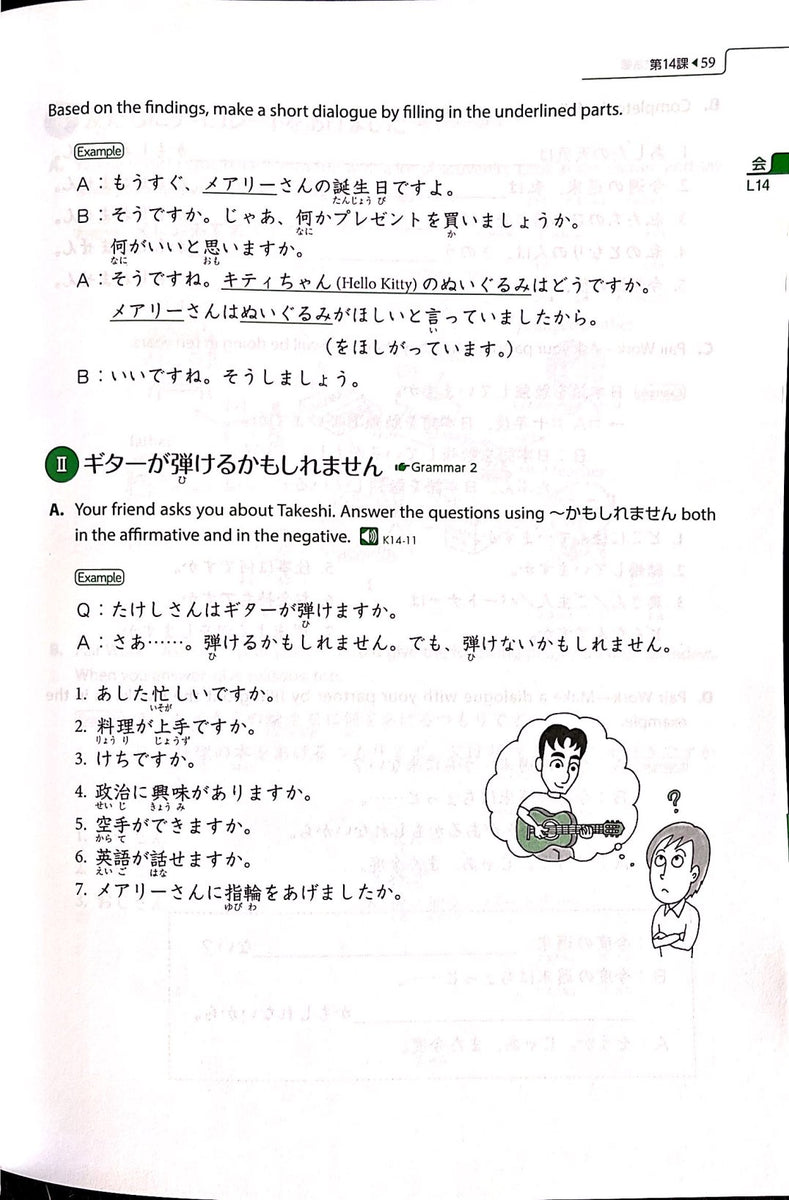 第14課◀59
会
L14
Based on the findings, make a short dialogue by filling in the underlined parts.
Example
A：もうすぐ、メアリーさんの誕生日ですよ。
たんじょう び
B：そうですか。じゃあ、何かプレゼントを買いましょうか。
なに か
何がいいと思いますか。
なに おも
A：そうですね。キティちゃん (Hello Kitty) のぬいぐるみはどうですか。
メアリーさんはぬいぐるみがほしいと言っていましたから。
い
(をほしがっています。)
B：いいですね。そうしましょう。
Ⅱ ギターが弾けるかもしれません ☛Grammar 2
ひ
A. Your friend asks you about Takeshi. Answer the questions using ～かもしれません both
in the affirmative and in the negative. K14-11
Example
Q：たけしさんはギターが弾けますか。
ひ
A：さあ……。弾けるかもしれません。でも、弾けないかもしれません。
ひ ひ
1. あした忙しいですか。
いそが
2. 料理が上手ですか。
りょう り じょうず
3. けちですか。
4. 政治に興味がありますか。
せい じ きょう み
5. 空手ができますか。
から て
6. 英語が話せますか。
えい ご はな
7. メアリーさんに指輪をあげましたか。
ゆび わ
?